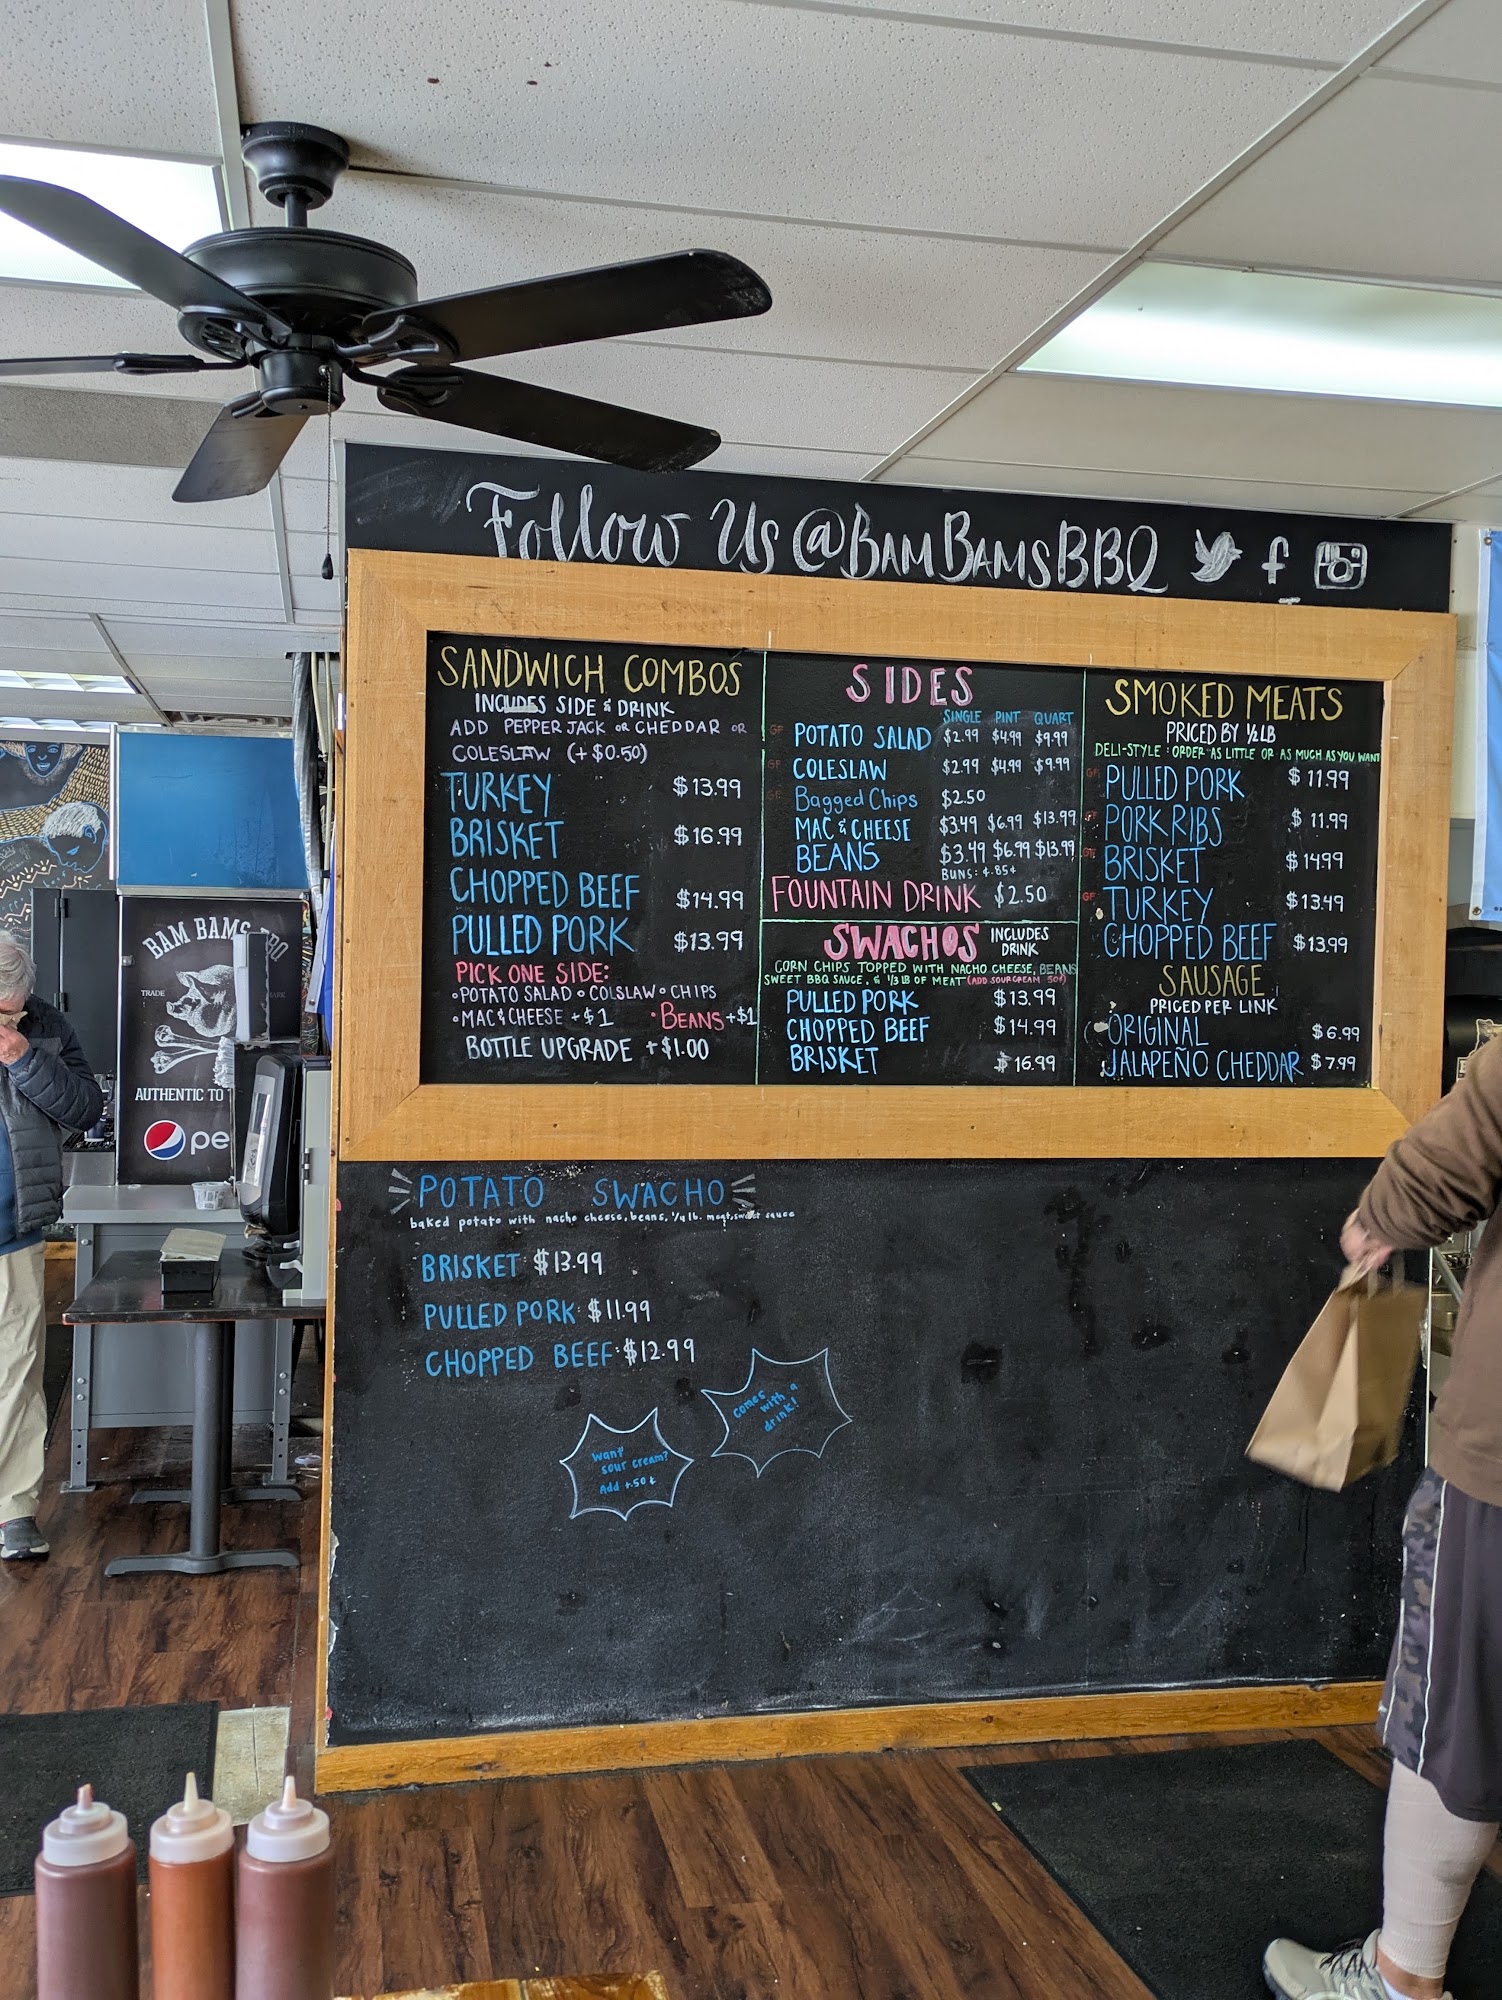 Follow Us @BAMBAMSBBQ f
SANDWICH COMBOS
INCLUDES SIDE & DRINK
ADD PEPPER JACK OR CHEDDAR OR
COLESLAW (+$0.50)
TURKEY $13.99
BRISKET $16.99
CHOPPED BEEF $14.99
PULLED PORK $13.99
PICK ONE SIDE:
•POTATO SALAD •COLSLAW •CHIPS
•MAC & CHEESE +$1 •BEANS +$1
BOTTLE UPGRADE +$1.00
SIDES
SINGLE PINT QUART
GF POTATO SALAD $2.99 $4.99 $9.99
GF COLESLAW $2.99 $4.99 $9.99
GF Bagged Chips $2.50
MAC & CHEESE $3.49 $6.99 $13.99
BEANS $3.49 $6.99 $13.99
BUNS: +.85¢
FOUNTAIN DRINK $2.50
SWACHOS INCLUDES DRINK
CORN CHIPS TOPPED WITH NACHO CHEESE, BEANS
SWEET BBQ SAUCE, & 1/3 LB OF MEAT (ADD SOUR CREAM 50¢)
PULLED PORK $13.99
CHOPPED BEEF $14.99
BRISKET $16.99
SMOKED MEATS
PRICED BY 1/2 LB
DELI-STYLE: ORDER AS LITTLE OR AS MUCH AS YOU WANT
GF PULLED PORK $11.99
GF PORK RIBS $11.99
GF BRISKET $14.99
GF TURKEY $13.49
CHOPPED BEEF $13.99
SAUSAGE
PRICED PER LINK
ORIGINAL $6.99
JALAPEÑO CHEDDAR $7.99
POTATO SWACHO
baked potato with nacho cheese, beans, 1/4 lb. meat, sweet sauce
BRISKET $13.99
PULLED PORK: $11.99
CHOPPED BEEF: $12.99
comes
with a
drink!
want
sour cream?
Add +.50¢
BAM BAMS BBQ
TRADE MARK
AUTHENTIC TO
pe